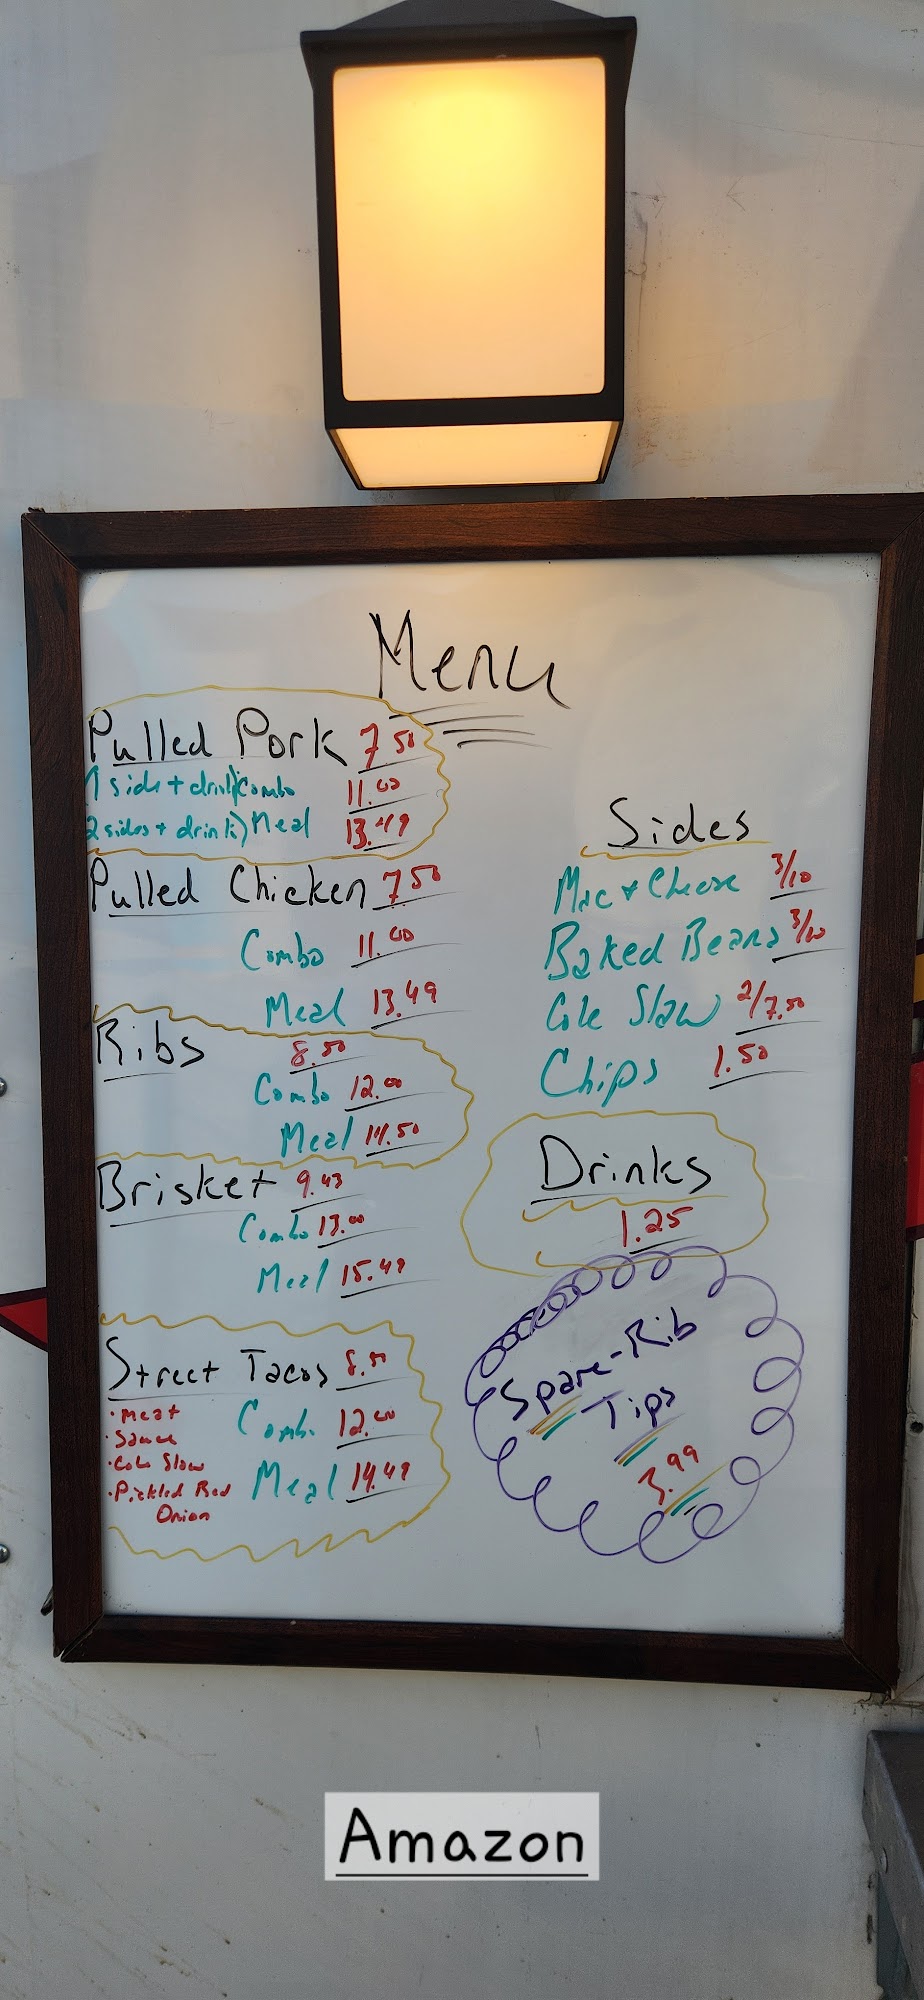 Menu
Pulled Pork 7.50
1 side + drink) Combo 11.00
2 sides + drink) Meal 13.49
Pulled Chicken 7.50
Combo 11.00
Meal 13.49
Ribs 8.50
Combo 12.00
Meal 14.50
Brisket 9.43
Combo 13.00
Meal 15.49
Street Tacos 8.50
Combo 12.00
Meal 14.49
• Meat
• Sauce
• Cole Slaw
• Pickled Red
Onion
Sides
Mac + Cheese 3/10
Baked Beans 3/10
Cole Slaw 2/7.50
Chips 1.50
Drinks
1.25
Spare-Rib
Tips
3.99
Amazon